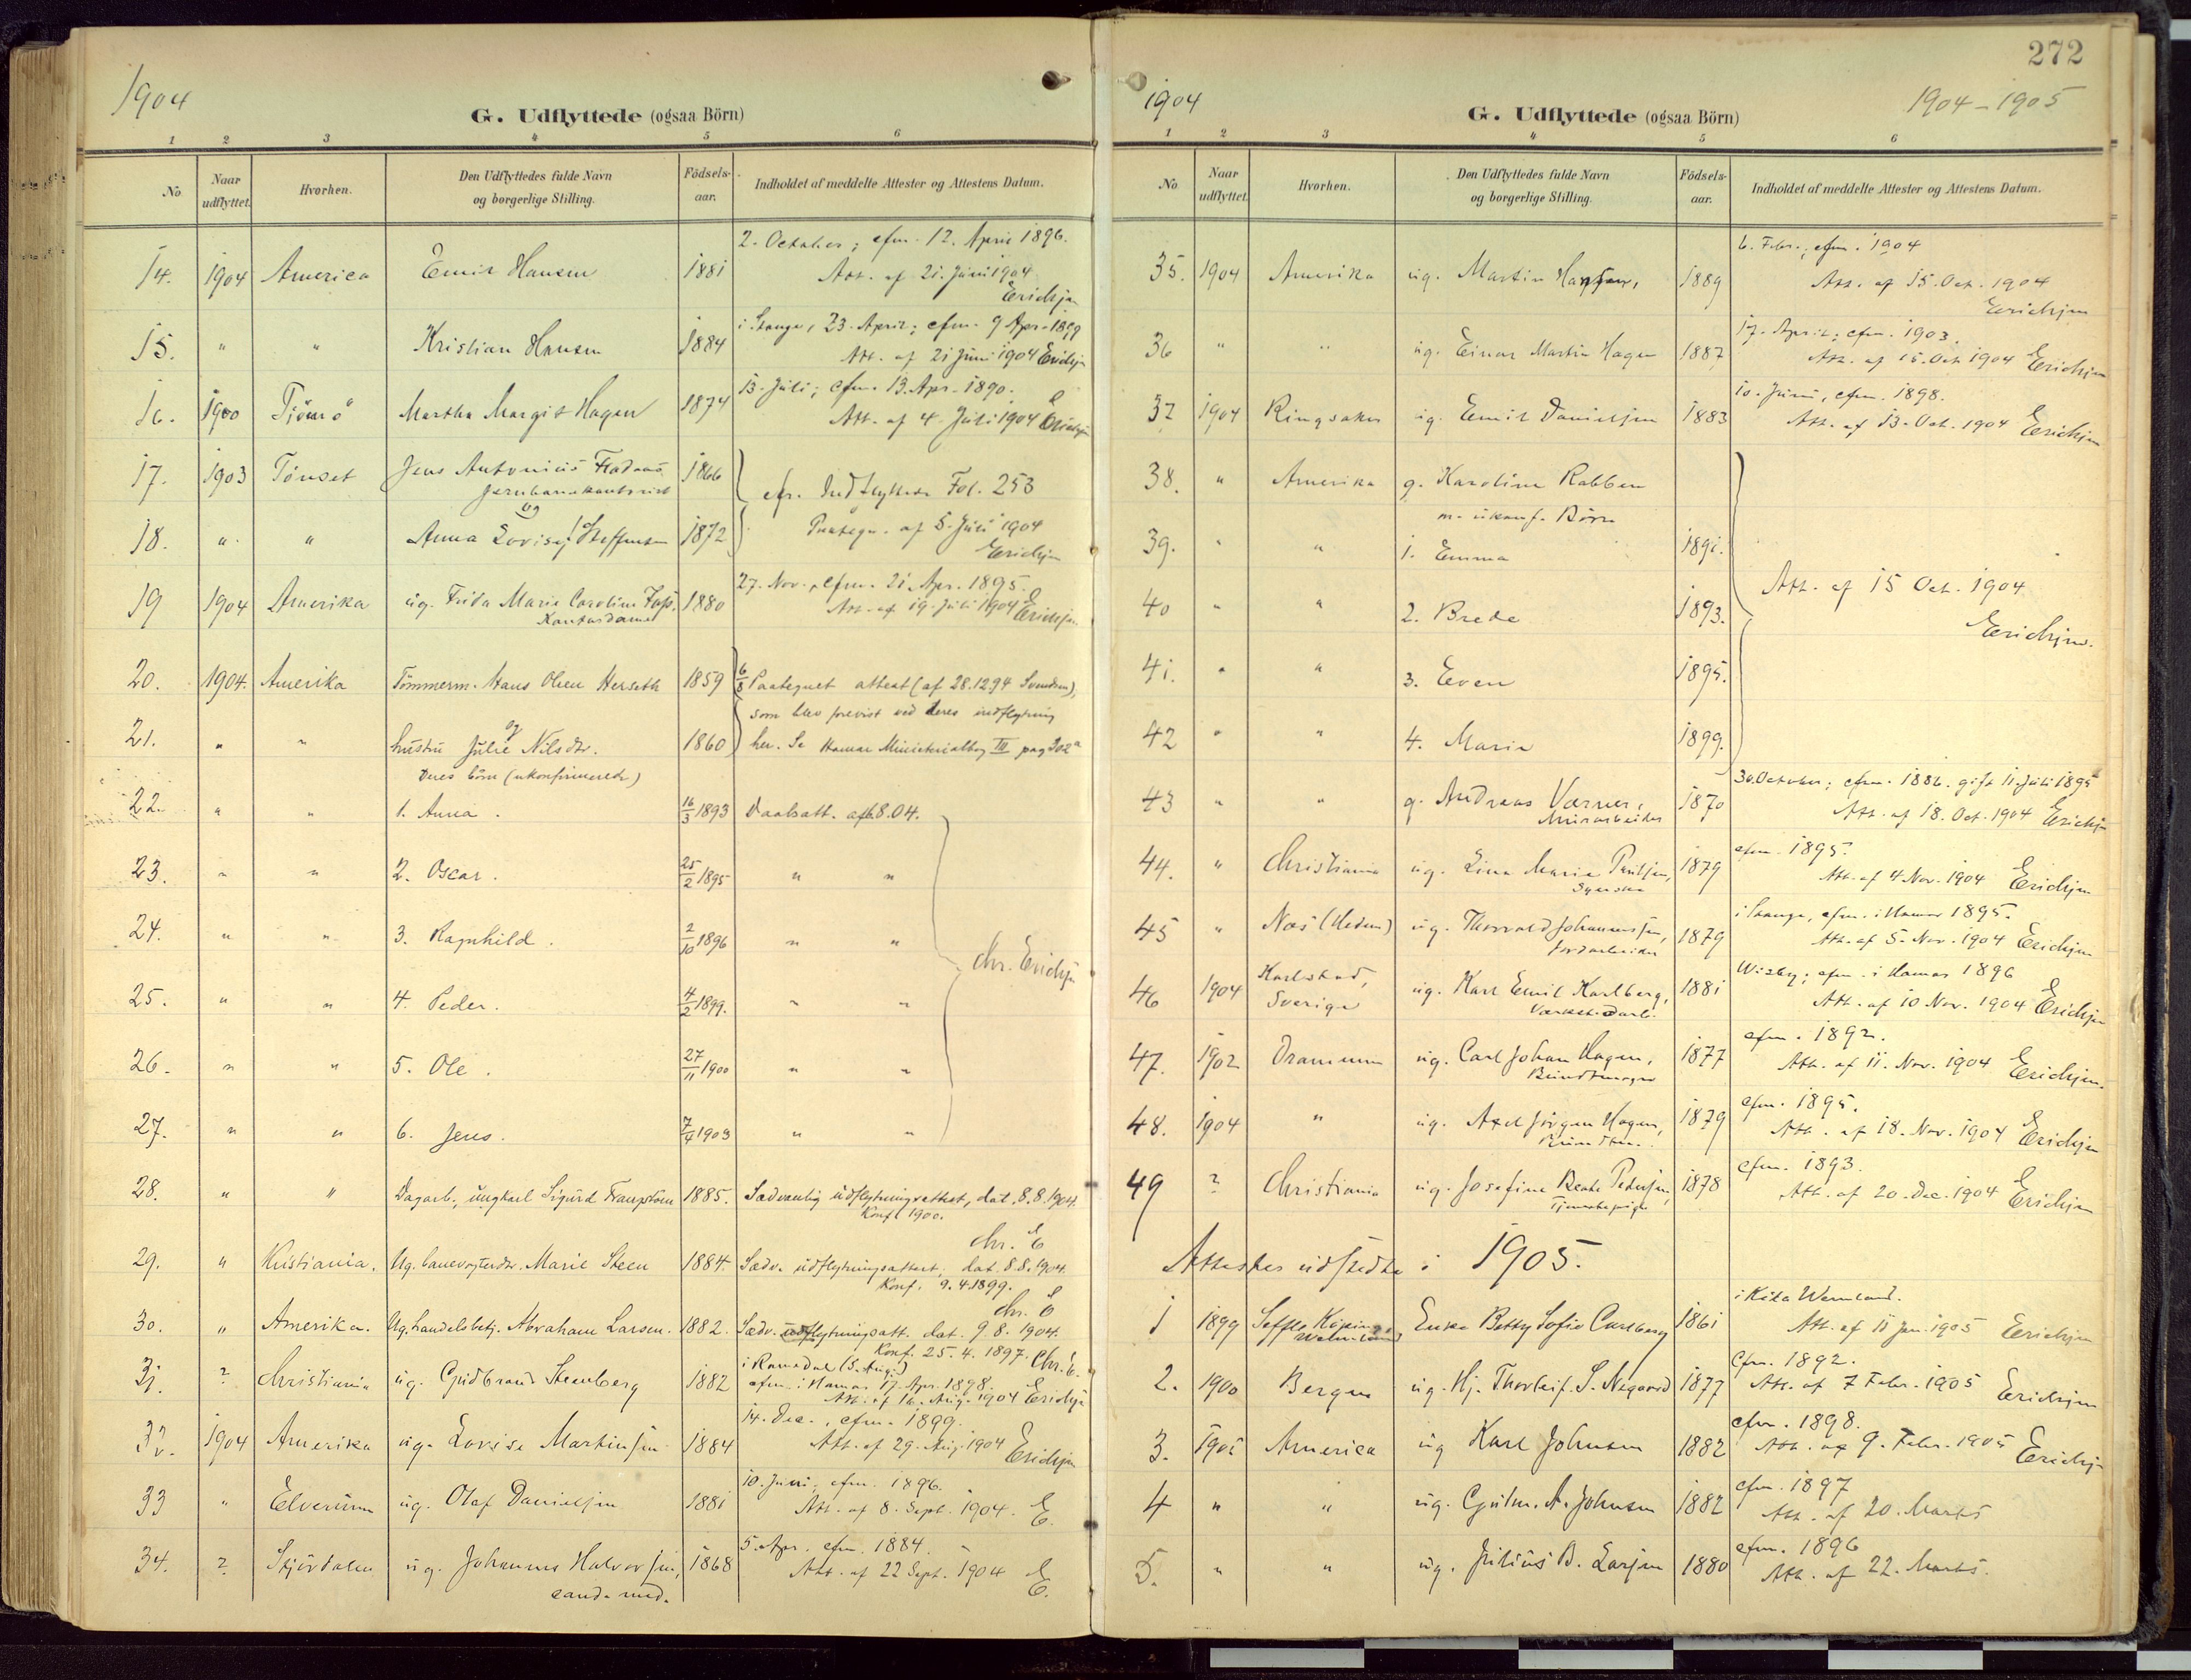 1904
G. Udflyttede (ogsaa Börn)
1 2 3 4 5 6
No. Naar udflyttet. Hvorhen. Den Udflyttedes fulde Navn og borgerlige Stilling. Födsels-aar. Indholdet af meddelte Attester og Attestens Datum.
2. October; cfm. 12. April 1896.
14. 1904 America Emil Hansen 1881 Att. af 21. Juni 1904
Erichsen
i Stange, 23. April; cfm. 9 Apr. 1899
15. " " Kristian Hansen 1884 Att. af 21 Juni 1904 Erichsen
13. Juli; cfm. 13. Apr. 1890.
16. 1900 Tjömö Martha Margit Hagen 1874 Att. af 4. Juli 1904 Erichsen
17. 1903 Tönset Jens Antonius 1866 cfr. Indflyttede Fol. 253
Jernbanekontorist
og
18. " " Anna Lovise Steffensen 1872 Paategn. af 5. Juli 1904
Erichsen
27. Nov., cfm. 21. Apr. 1895.
19 1904 Amerika ug. Frida Marie Caroline 1880 Att. af 19. Juli 1904 Erichsen
Kontordame
20. 1904. Amerika Tömmerm. Hans Olsen Herseth 1859 6/8 Paategnet attest (af 28.12.94 Svendsen),
som blev forevist ved deres indflytning
og
21. " " hustru Julie Nilsdtr. 1860 her. Se Hamar Ministerialbog III pag 302a
Deres börn (ukonfirmerede)
22. " " 1. Anna. 16/3 1893 Daabsatt. af 6.8.04.
23. " " 2. Oscar. 25/2 1895 " "
24. " " 3. Ragnhild. 2/10 1896 " "
Chr. Erichsen
25. " " 4. Peder. 4/2 1899. " "
26. " " 5. Ole. 27/11 1900 " "
27. " " 6. Jens. 7/4 1903 " "
28. " " Dagarb., ungkarl Sigurd 1885. Sædvanlig udflytningsattest, dat. 8.8.1904.
Konf. 1900.
Chr. E
29. " Kristiania. Ug. banevogterdtr. Marie Steen 1884. Sædv. udflytningsattest, dat. 8.8.1904.
Konf. 9.4.1899.
Chr. E
30. " Amerika. Ug. handelsbetj. Abraham Larsen. 1882. Sædv. udflytningsatt. dat. 9.8.1904.
Konf. 25.4.1897. Chr. E.
i Romedal (3. Aug.)
31. ? Christiania ug. Gudbrand Steenberg 1882 cfm. i Hamar 17. Apr. 1898.
Att. af 16. Aug. 1904 Erichsen
14. Dec., cfm. 1899.
32. 1904 Amerika ug. Lovise Martinsen 1884 Att. af 29. Aug. 1904 Erichsen
10. Juni, cfm. 1896.
33 " Elverum ug. Olaf Danielsen 1881 Att. af 8. Sept. 1904. E.
5. Apr. cfm. 1884.
34. ? Stjördalen ug. Johannes Halvorsen, 1868 Att. af 22 Sept. 1904 E.
cand. med.
272
1904
1904-1905
G. Udflyttede (ogsaa Börn)
1 2 3 4 5 6
No. Naar udflyttet. Hvorhen. Den Udflyttedes fulde Navn og borgerlige Stilling. Födsels-aar. Indholdet af meddelte Attester og Attestens Datum.
6. Febr., cfm. 1904
35. 1904 Amerika ug. Martin Hansen, 1889 Att. af 15. Oct. 1904
Erichsen
17. April; cfm. 1903.
36 " " ug. Einar Martin Hagen 1887 Att. af 15. Oct. 1904 Erichsen
10. Juni, cfm. 1898.
37 1904 Ringsaker ug. Emil Danielsen 1883 Att. af 13. Oct. 1904 Erichsen
38. " Amerika g. Karoline Rabben
m. ukonf. Börn
39. " " 1. Emma 1891.
Att. af 15 Oct. 1904
40 " " 2. Brede 1893.
Erichsen.
41. " " 3. Even 1895.
42 " " 4. Marie 1899.
30. October; cfm. 1886. gift 11. Juli 1895
43 " " g. Andreas Varner, 1870 Att. af 18. Oct. 1904 Erichsen
Murarbeider
cfm. 1895.
44. " Christiania ug. Lina Marie Paulsen, 1879 Att. af 4 Nov. 1904 Erichsen
Syerske
i Stange, cfm. i Hamar 1895.
45 " Nes (Hedem) ug. Thorvald Johannessen, 1879 Att. af 5. Nov. 1904 Erichsen
Jordarbeider
Karlstad, Wisby; cfm. i Hamar 1896
46 1904 Sverige ug. Karl Emil Karlberg, 1881 Att. af 10 Nov. 1904 Erichsen
Værkstedarb.
cfm. 1892.
47. 1902 Drammen ug. Carl Johan Hagen, 1877 Att. af 11. Nov. 1904 Erichsen.
Bundtmager
cfm. 1895.
48. 1904 " ug. Axel Jörgen Hagen, 1879 Att. af 18. Nov. 1904 Erichsen
Bundtm.
cfm. 1893.
49 ? Christiania ug. Josefine Beate Pedersen, 1878 Att. af 20. Dec. 1904 Erichsen
Tjenestepige
Attester udstedte i 1905.
i Kila Wermland.
1 1899 Seffle Köping Enke Betty Sofie Carlberg 1861 Att. af 11 Jan. 1905 Erichsen
Wermland
Cfm. 1892.
2. 1900 Bergen ug. Hj. Thorleif S. Negaard 1877 Att. af 7 Febr. 1905 Erichsen
cfm. 1898.
3. 1905 America ug Karl Johnsen 1882 Att. af 9. Febr. 1905 Erichsen
cfm. 1897
4 " " ug. Gulm. A. Johnsen 1882 Att. af 20. Marts
cfm. 1896
5. " " ug. Julius B. Larsen 1880 Att. af 22. Marts.